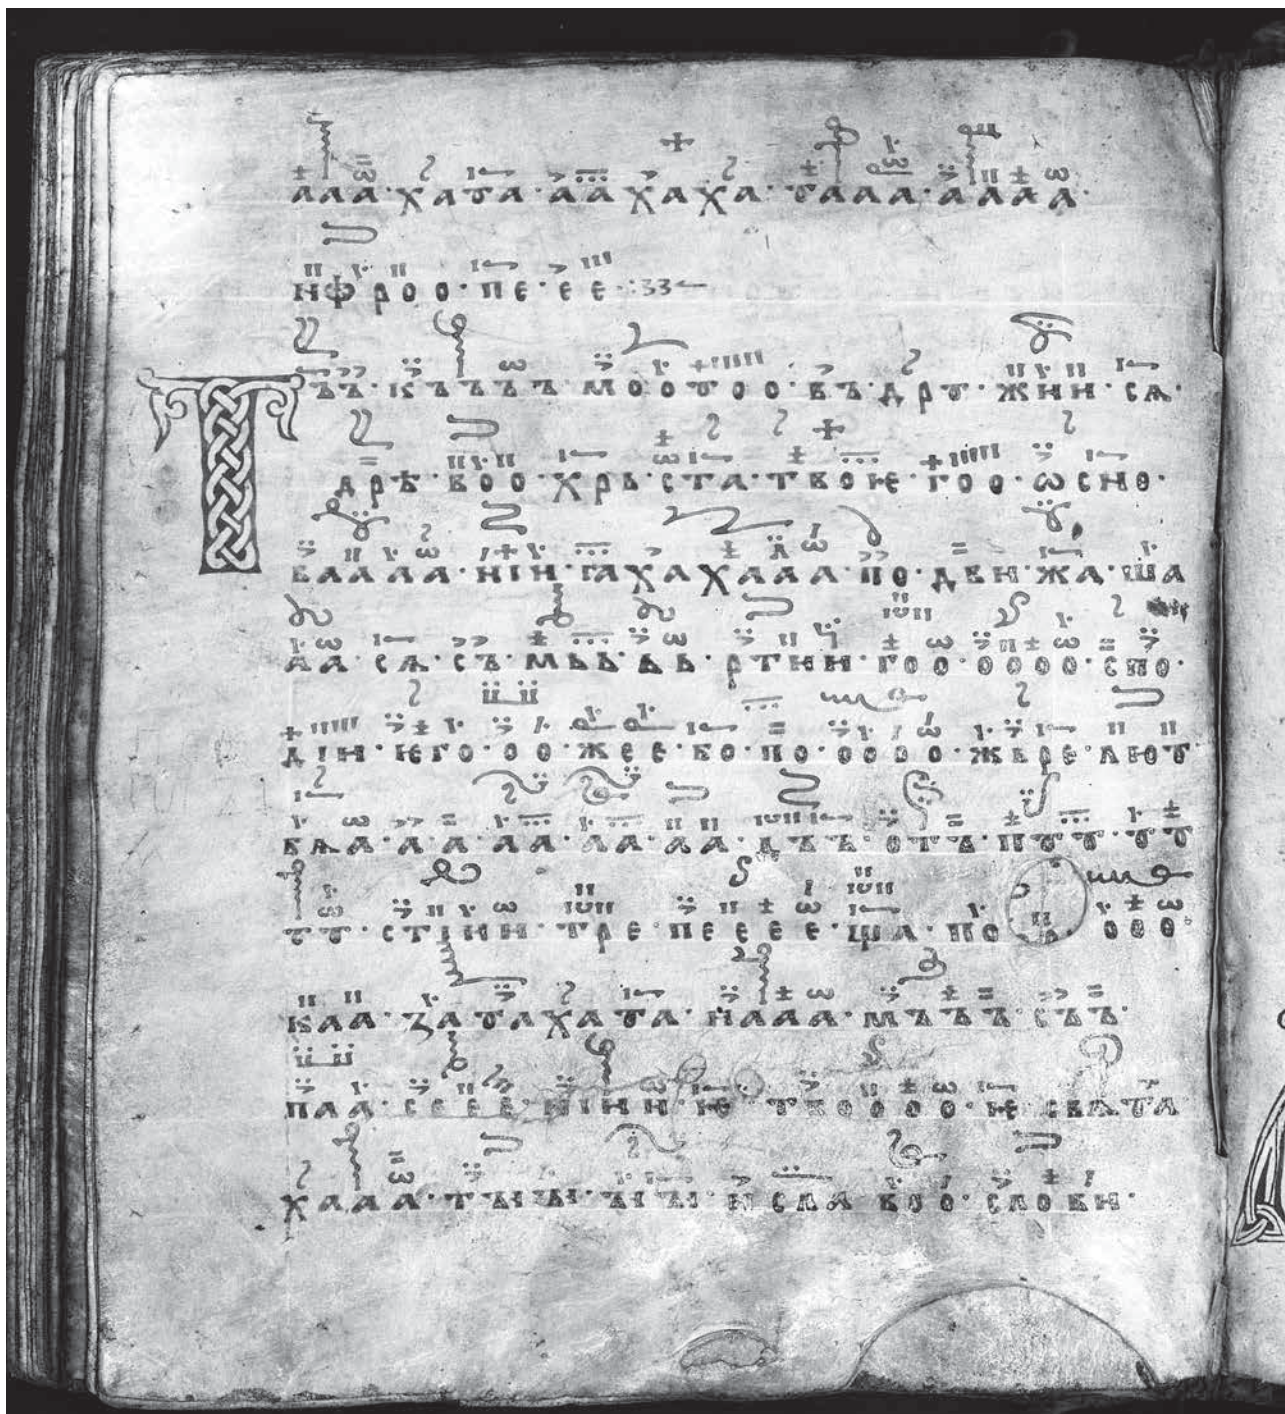 ааа·хата·аа·хаха·таааа·аааа·
нф·роо·пе·ее·
Тъъ·къъъъ·моотоо·въ·дрꙋ·жнн·сѧ·
дрѣ·воо·хрь·ста·твоѥ·гоо·ѡсно·
ваааа·нін·га·ха·хааа·по·двн·жа·ша
аа·сѧ·съ·мьь·ьь·ртнн·гоо·оооо·спо·
дін·ѥго·оо·жее·бо·по·оооо·жьре·лют·
вѧа·а·а·аа·аа·аа·дъъ·отъ·пꙋꙋ·ꙋꙋ
ꙋꙋ·стінн·тре·пеееe·ща·по· ооо·
каа·ꙁа·та·ха·та·нааа·мъъъ·съъ·
паа·сеее·нінн·ѥ·твоооо·ѥ·свѧта
хааа·тꙑꙑ·ꙑꙑ·н сла воо·словн·